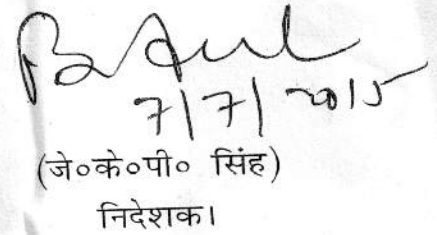 7/7/2015
(जे०के०पी० सिंह)
निदेशक।